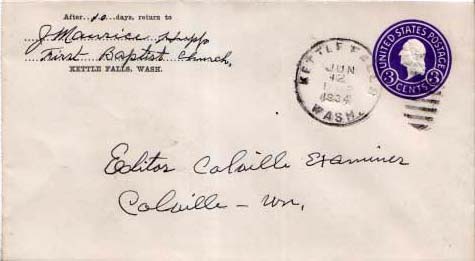 After 10 days, return to
J Maurice
First Baptist Church,
KETTLE FALLS, WASH.
KETTLE FALLS
JUN
12
1934
WASH.
UNITED STATES POSTAGE
3 CENTS 3
Editor Colville Examiner
Colville - Wn.